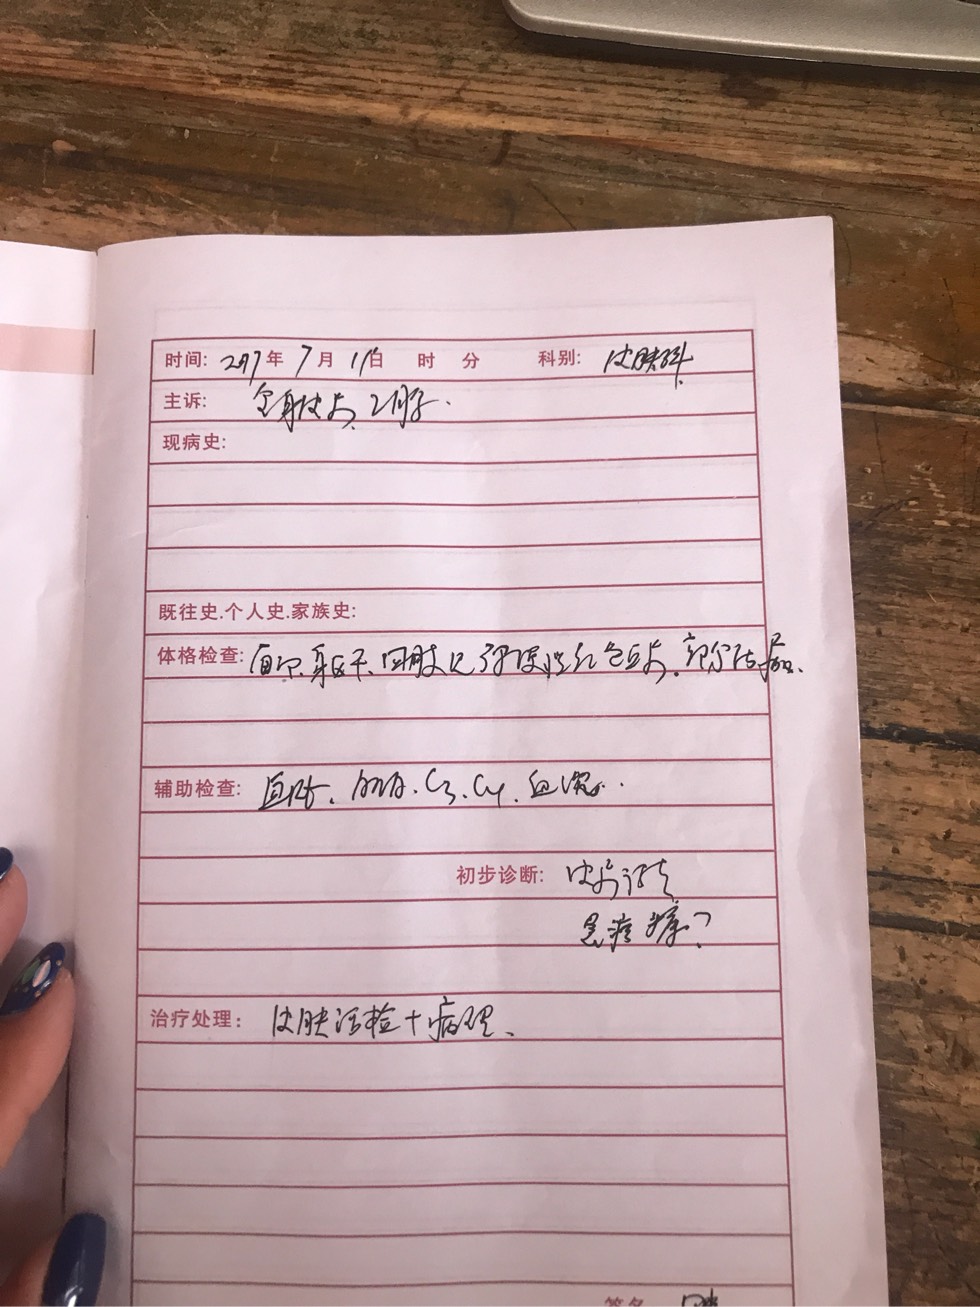 时间: 2017年 7月 11日 时 分 科别: 皮肤科
主诉: 全身皮疹2月余.
现病史:
既往史.个人史.家族史:
体格检查: 面部、躯干、四肢见弥漫性红色丘疹、部分结痂、
辅助检查: 血 C3. C4. 血
初步诊断: 皮疹待查
痒疹?
治疗处理: 皮肤活检+病理、
签名